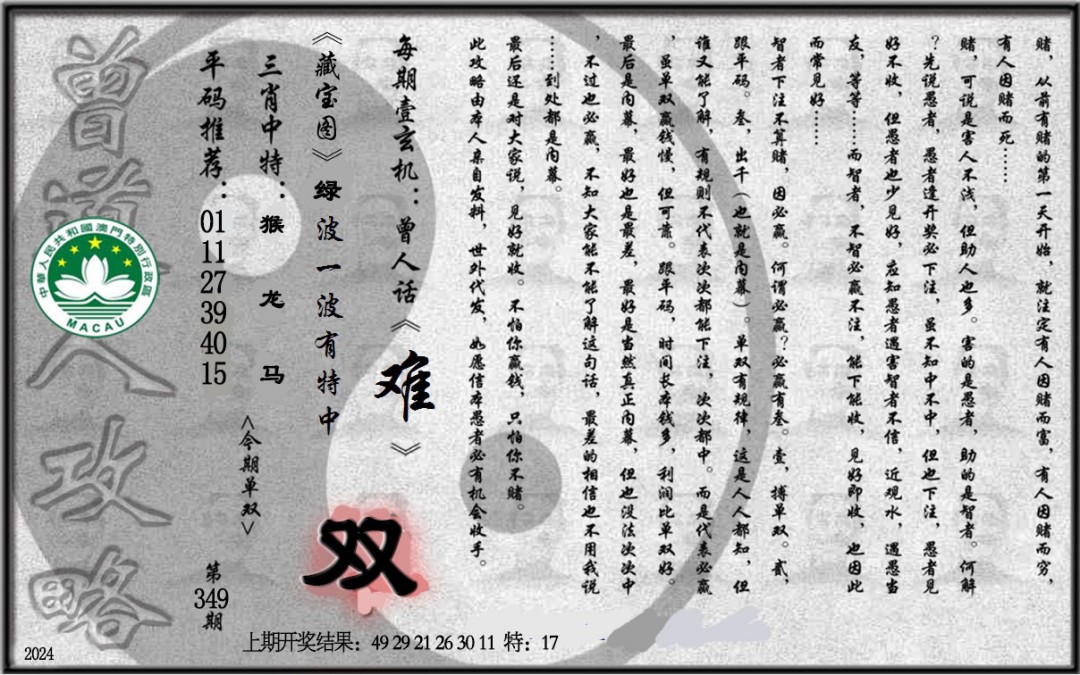 赌，从前有赌的第一天开始，就注定有人因赌而富，有人因赌而穷，
有人因赌而死……
赌，可说是害人不浅，但助人也多。害的是愚者，助的是智者。何解
？先说愚者，愚者逢开奖必下注，虽不知中不中，但也下注，愚者见
好不收，但愚者也少见好，应知愚者遇害智者不信，近观水，遇愚当
友，等等……而智者，不智必赢不注，能下能收，见好即收，也因此
而常见好……
智者下注不算赌，因必赢。何谓必赢？必赢有叁。壹，搏单双。贰，
跟平码。叁，出千（也就是内幕）。单双有规律，这是人人都知，但
谁又能了解，有规则不代表次次都能下注，次次都中。而是代表必赢
，虽单双赢钱慢，但可靠。跟平码，时间长本钱多，利润比单双好。
最后是内幕，最好也是最差，最好是当然真正内幕，但也没法次次中
，不过也必赢，不知大家能不能了解这句话，最差的相信也不用我说
……到处都是内幕。
最后还是对大家说，见好就收。不怕你赢钱，只怕你不赌。
此攻略由本人亲自发料，世外代发，如愿信本愚者必有机会收手。
每期壹玄机：曾人话《难》
《藏宝图》绿波一波有特中
双
三肖中特：猴 龙 马
<今期单双>
平码推荐：01 11 27 39 40 15
第349期
曾道人攻略
中華人民共和國澳門特別行政區
MACAU
上期开奖结果：49 29 21 26 30 11 特：17
2024